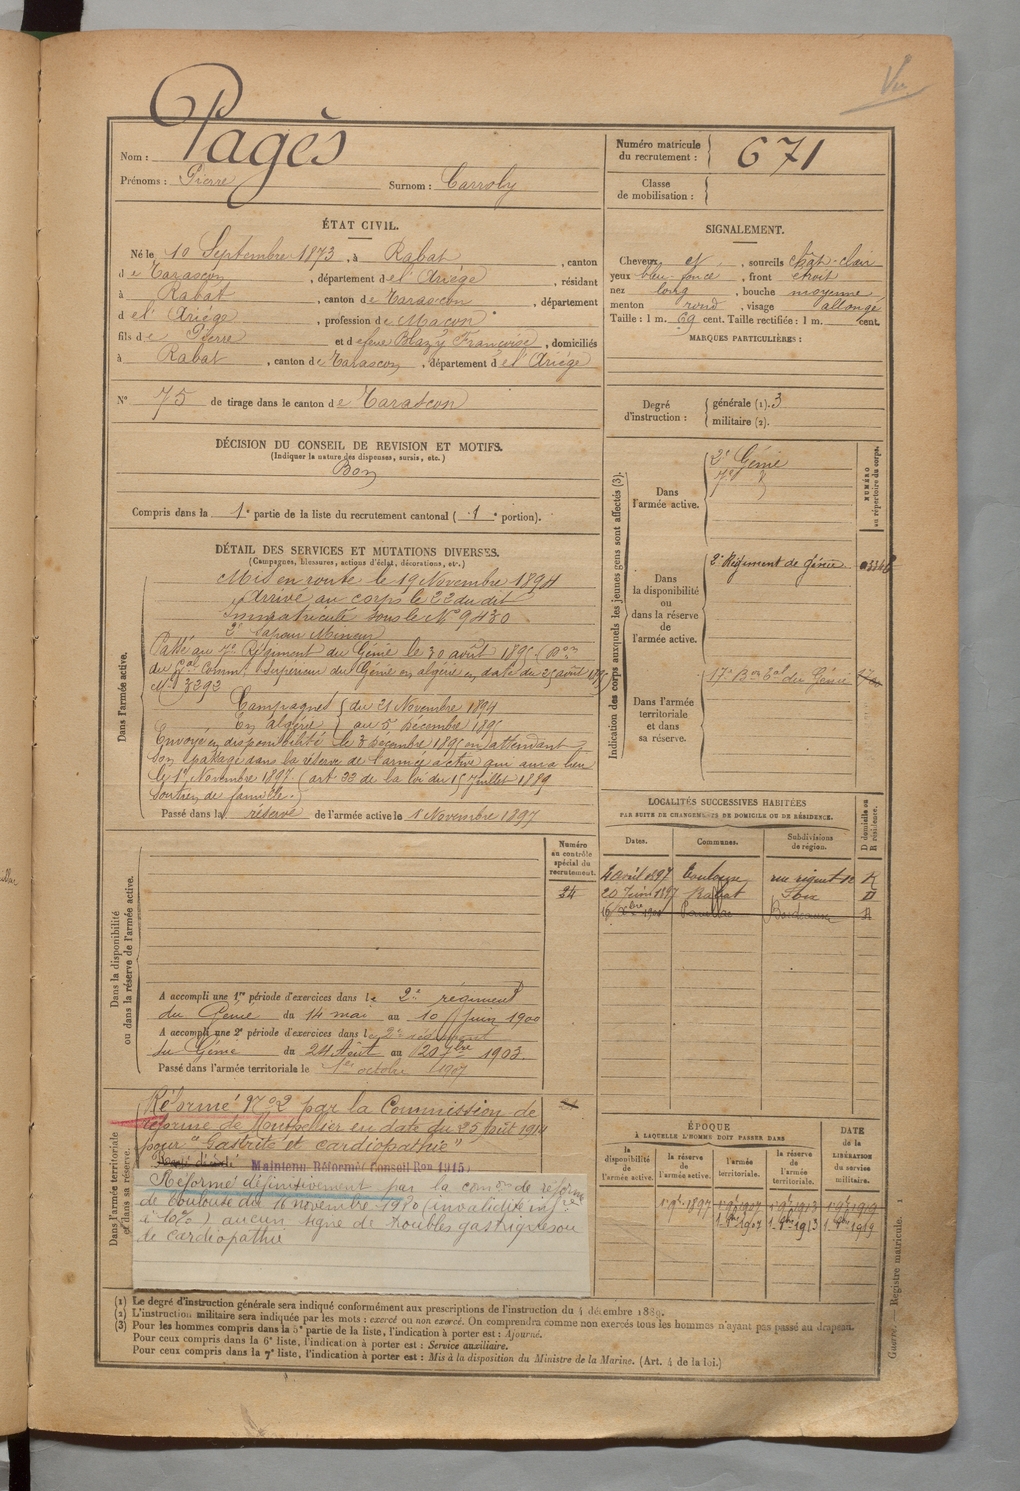 Vu
Pagès
Nom :
Prénoms : Pierre Surnom : Carroly
Numéro matricule
du recrutement : 671
Classe
de mobilisation :
ÉTAT CIVIL.
Né le 10 Septembre 1873, à Rabat, canton
de Tarascon, département de l'Ariège, résidant
à Rabat, canton de Tarascon, département
de l'Ariège, profession de Maçon
fils de Pierre et de feue Blazy Françoise, domiciliés
à Rabat, canton de Tarascon, département de l'Ariège
N° 75 de tirage dans le canton de Tarascon
SIGNALEMENT.
Cheveux et, sourcils chât-clair
yeux bleu foncé, front étroit
nez long, bouche moyenne
menton rond, visage allongé
Taille : 1 m. 69 cent. Taille rectifiée : 1 m. cent.
MARQUES PARTICULIÈRES :
Degré
d'instruction :
générale (1). 3
militaire (2).
DÉCISION DU CONSEIL DE REVISION ET MOTIFS.
(Indiquer la nature des dispenses, sursis, etc.)
Bon
Compris dans la 1e partie de la liste du recrutement cantonal ( 1e portion).
DÉTAIL DES SERVICES ET MUTATIONS DIVERSES.
(Campagnes, blessures, actions d'éclat, décorations, etc.)
Dans l'armée active.
Mis en route le 19 Novembre 1894
Arrivé au corps le 22 du dit
Immatriculé sous le N° 9430
2e Sapeur Mineur
Passé au 7e Régiment du Génie le 30 août 1895 (Bon
du Gal Commt Supérieur du Génie en algérie en date du 25 août 1895
N° 3292
Campagnes du 21 Novembre 1894
En algérie au 5 Décembre 1895
Envoyé en disponibilité le 3 Décembre 1895 en attendant
son passage dans la réserve de l'armée active qui aura lieu
le 1er Novembre 1897 (art 22 de la loi du 15 Juillet 1889
soutien de famille)
Passé dans la réserve de l'armée active le 1 Novembre 1897
Indication des corps auxquels les jeunes gens sont affectés (3).
NUMÉRO
au répertoire du corps.
Dans
l'armée active.
2e Génie
7e d
Dans
la disponibilité
ou
dans la réserve
de
l'armée active.
2e Régiment de génie
Dans l'armée
territoriale
et dans
sa réserve.
17e Bon Tal du Génie
LOCALITÉS SUCCESSIVES HABITÉES
PAR SUITE DE CHANGEMENTS DE DOMICILE OU DE RÉSIDENCE.
D domicile ou
R résidence.
Dates. Communes. Subdivisions
de région.
4 avril 1897 Toulouse R
20 Juin 1897 Rabat Foix D
Pauillac Bordeaux R
Numéro
au contrôle
spécial du
recrutement.
24
Dans la disponibilité
ou dans la réserve de l'armée active.
A accompli une 1re période d'exercices dans le 2e régiment
du Génie du 14 mai au 10 Juin 1900
A accompli une 2e période d'exercices dans le 2e régiment
du Génie du 24 Août au 20 7bre 1903.
Passé dans l'armée territoriale le 1er octobre 1907
Dans l'armée territoriale
et dans sa réserve.
Réformé N° 2 par la Commission de
réforme de Montpellier en date du 25 août 1914
pour "Gastrite et cardiopathie"
Maintenu Réformé (Conseil Ron 1915)
Réformé définitivement par la comon de réforme
de Toulouse du 16 novembre 1920 (invalidité infre
à 10%) aucun signe de troubles gastriques ou
de cardiopathie
ÉPOQUE
À LAQUELLE L'HOMME DOIT PASSER DANS
la
disponibilité
de
l'armée active.
la réserve
de
l'armée active.
l'armée
territoriale.
la réserve
de
l'armée
territoriale.
DATE
de la
LIBÉRATION
du service
militaire.
1e 9bre 1897 1e 9bre 1907 1e 9bre 1913 1e 9bre 1919
1 8bre 1907 1 8bre 1913 1 8bre 1919
(1) Le degré d'instruction générale sera indiqué conformément aux prescriptions de l'instruction du 4 décembre 1889.
(2) L'instruction militaire sera indiquée par les mots : exercé ou non exercé. On comprendra comme non exercés tous les hommes n'ayant pas passé au drapeau.
(3) Pour les hommes compris dans la 5e partie de la liste, l'indication à porter est : Ajourné.
Pour ceux compris dans la 6e liste, l'indication à porter est : Service auxiliaire.
Pour ceux compris dans la 7e liste, l'indication à porter est : Mis à la disposition du Ministre de la Marine. (Art. 4 de la loi.)
Guerre. — Registre matricule. 1